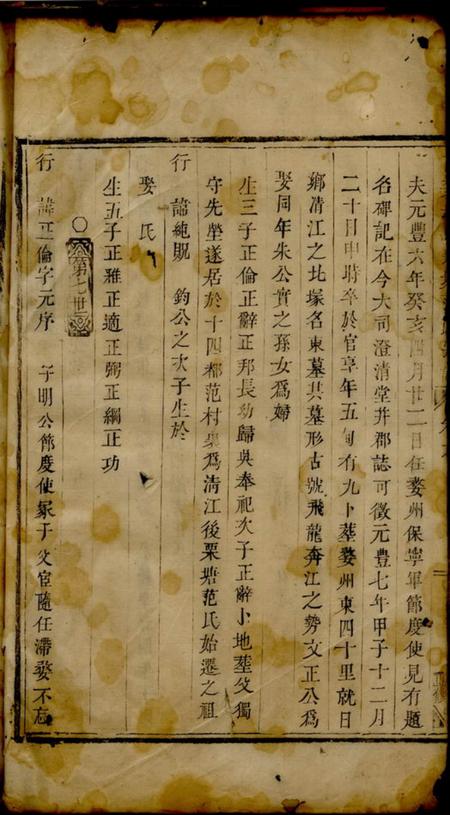 夫元豐六年癸亥四月廿二日任婺州保寧軍節度使見有題
名碑記在今大司澄清堂并郡誌可徵元豐七年甲子十二月
二十日申時卒於官享年五旬有九卜葬婺州東四十里就日
鄉清江之北塚名東墓其墓形古號飛龍奔江之勢文正公為
娶同年朱公實之孫女為婦
生三子正倫正辭正邦長功歸吳奉祀次子正辭卜地葬父獨
守先塋遂居於十四都范村裏為清江後栗塘范氏始遷之祖
行 諱純貺 鈞公之次子生於
娶 氏
生五子正雅正適正弼正綱正功
〇第七世
行 諱正倫字元序 子明公節度使冢子父宦隨任滯婺不忘